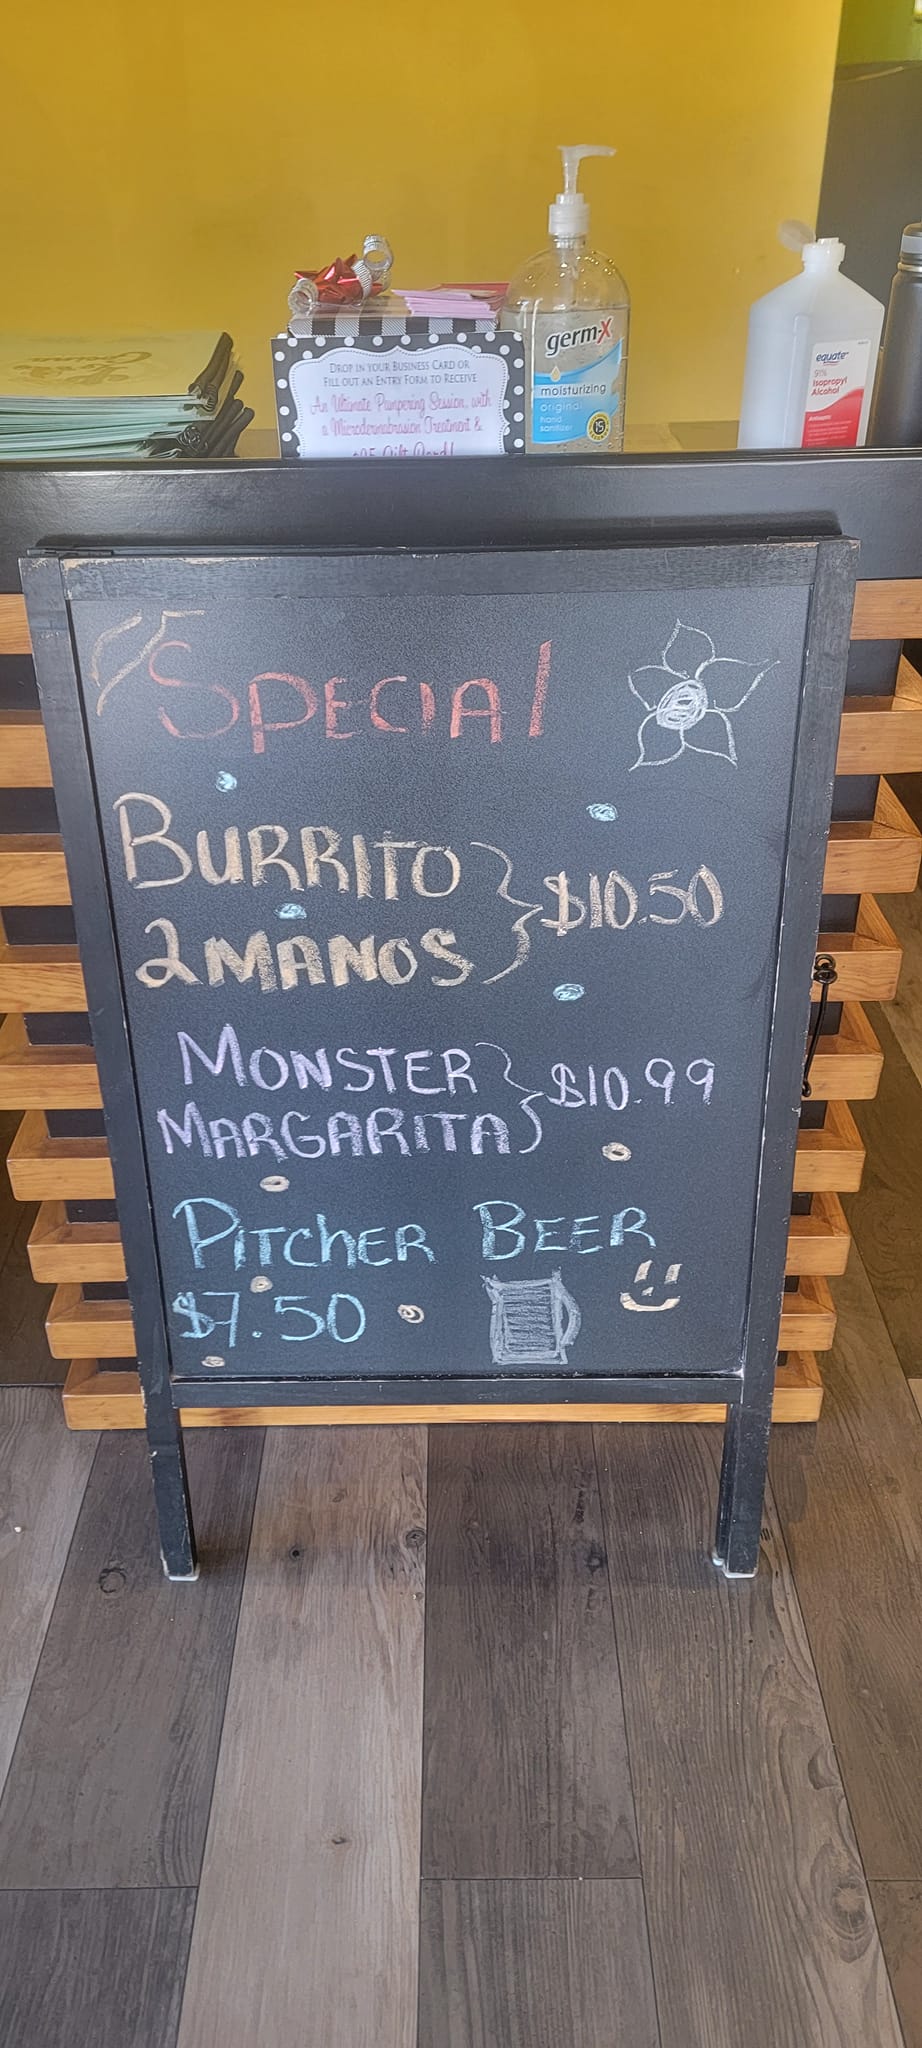 DROP IN YOUR BUSINESS CARD OR
FILL OUT AN ENTRY FORM TO RECEIVE
An Ultimate Pampering Session, with
a Microdermabrasion Treatment &
germ-x
moisturizing
original
hand
sanitizer
15
equate
91%
Isopropyl
Alcohol
Antiseptic
SPECIAL
BURRITO
2 MANOS
$10.50
MONSTER
MARGARITA
$10.99
PITCHER BEER
$7.50